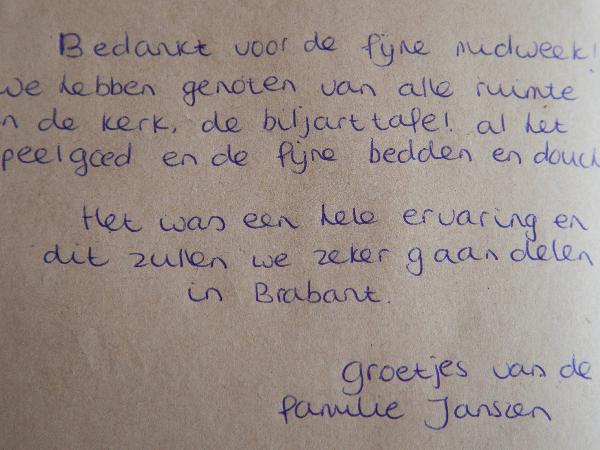 Bedankt voor de fijne midweek!
we hebben genoten van alle ruimte
n de kerk, de biljarttafel! al het
peelgoed en de fijne bedden en douch
Het was een hele ervaring en
dit zullen we zeker gaan delen
in Brabant.
groetjes van de
familie Janssen